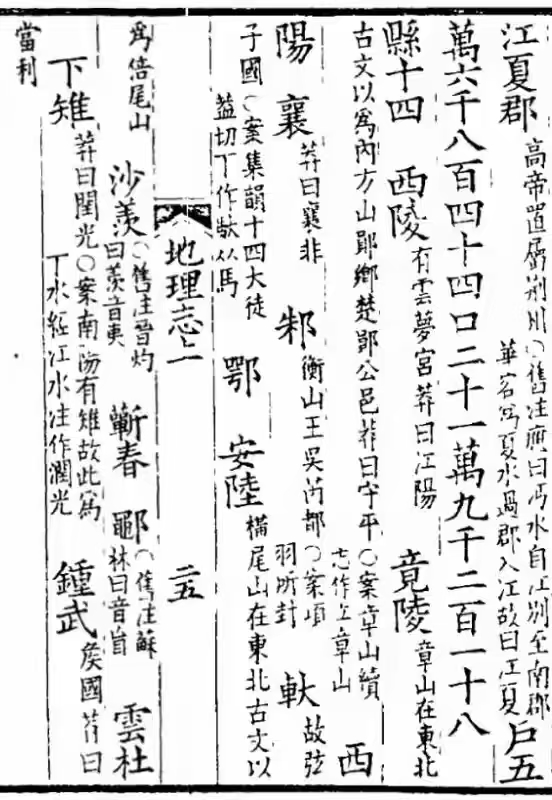 江夏郡
高帝置屬荆州○舊注應曰沔水自江别至南郡
華容爲夏水過郡入江故曰江夏
戶五
萬六千八百四十四口二十一萬九千二百一十八
縣十四 西陵 有雲夢宮莽曰江陽 竟陵 章山在東北
古文以爲內方山鄖鄉楚鄖公邑莽曰守平○案章山續
志作立章山
西
陽 襄 莽曰襄非 邾 衡山王吳芮都○案項
羽所封
軑 故弦
子國○案集韻十四大徒
蓋切下作馱从馬
鄂 安陸 橫尾山在東北古文以
地理志上 二五
爲倍尾山 沙羨 ○舊注晉灼
曰羨音夷
蘄春 鄳 ○舊注蘇
林曰音盲
雲杜
下雉 莽曰閏光○案南陽有雉故此爲
下水經江水注作潤光
鍾武 侯國莽曰
當利